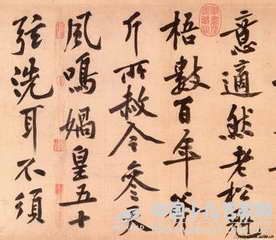 意適然老松
梧數百年斧
斤所赦今參天
風鳴媧皇五十
弦洗耳不須